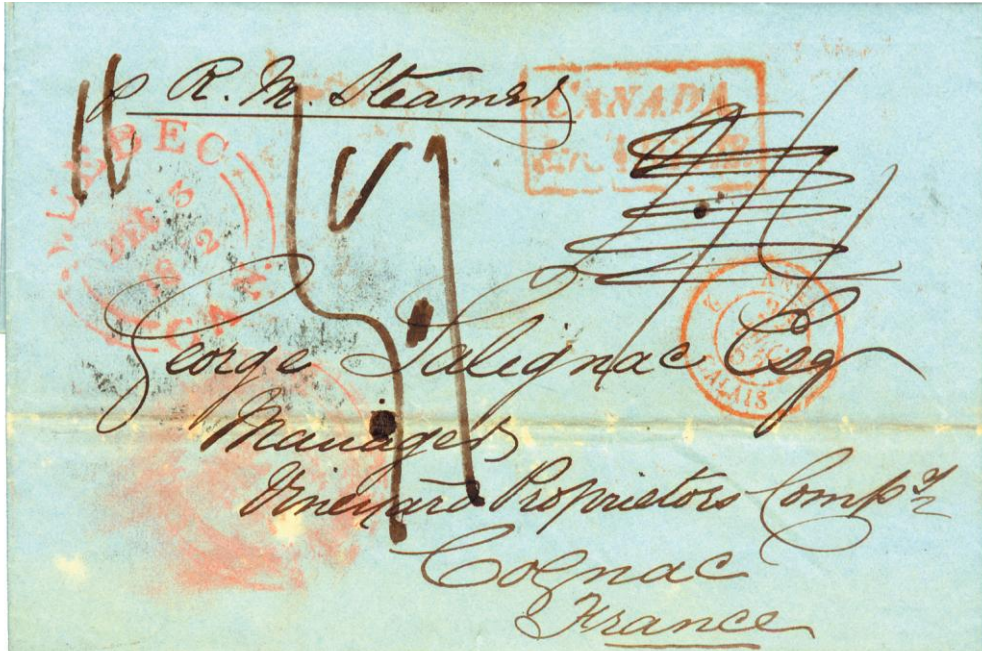 p R. M. Steamer
CANADA
QUEBEC
DEC 3
CAN.
CALAIS
George Salignac Esq
Manager
Vineyard Proprietors Compy
Cognac
France